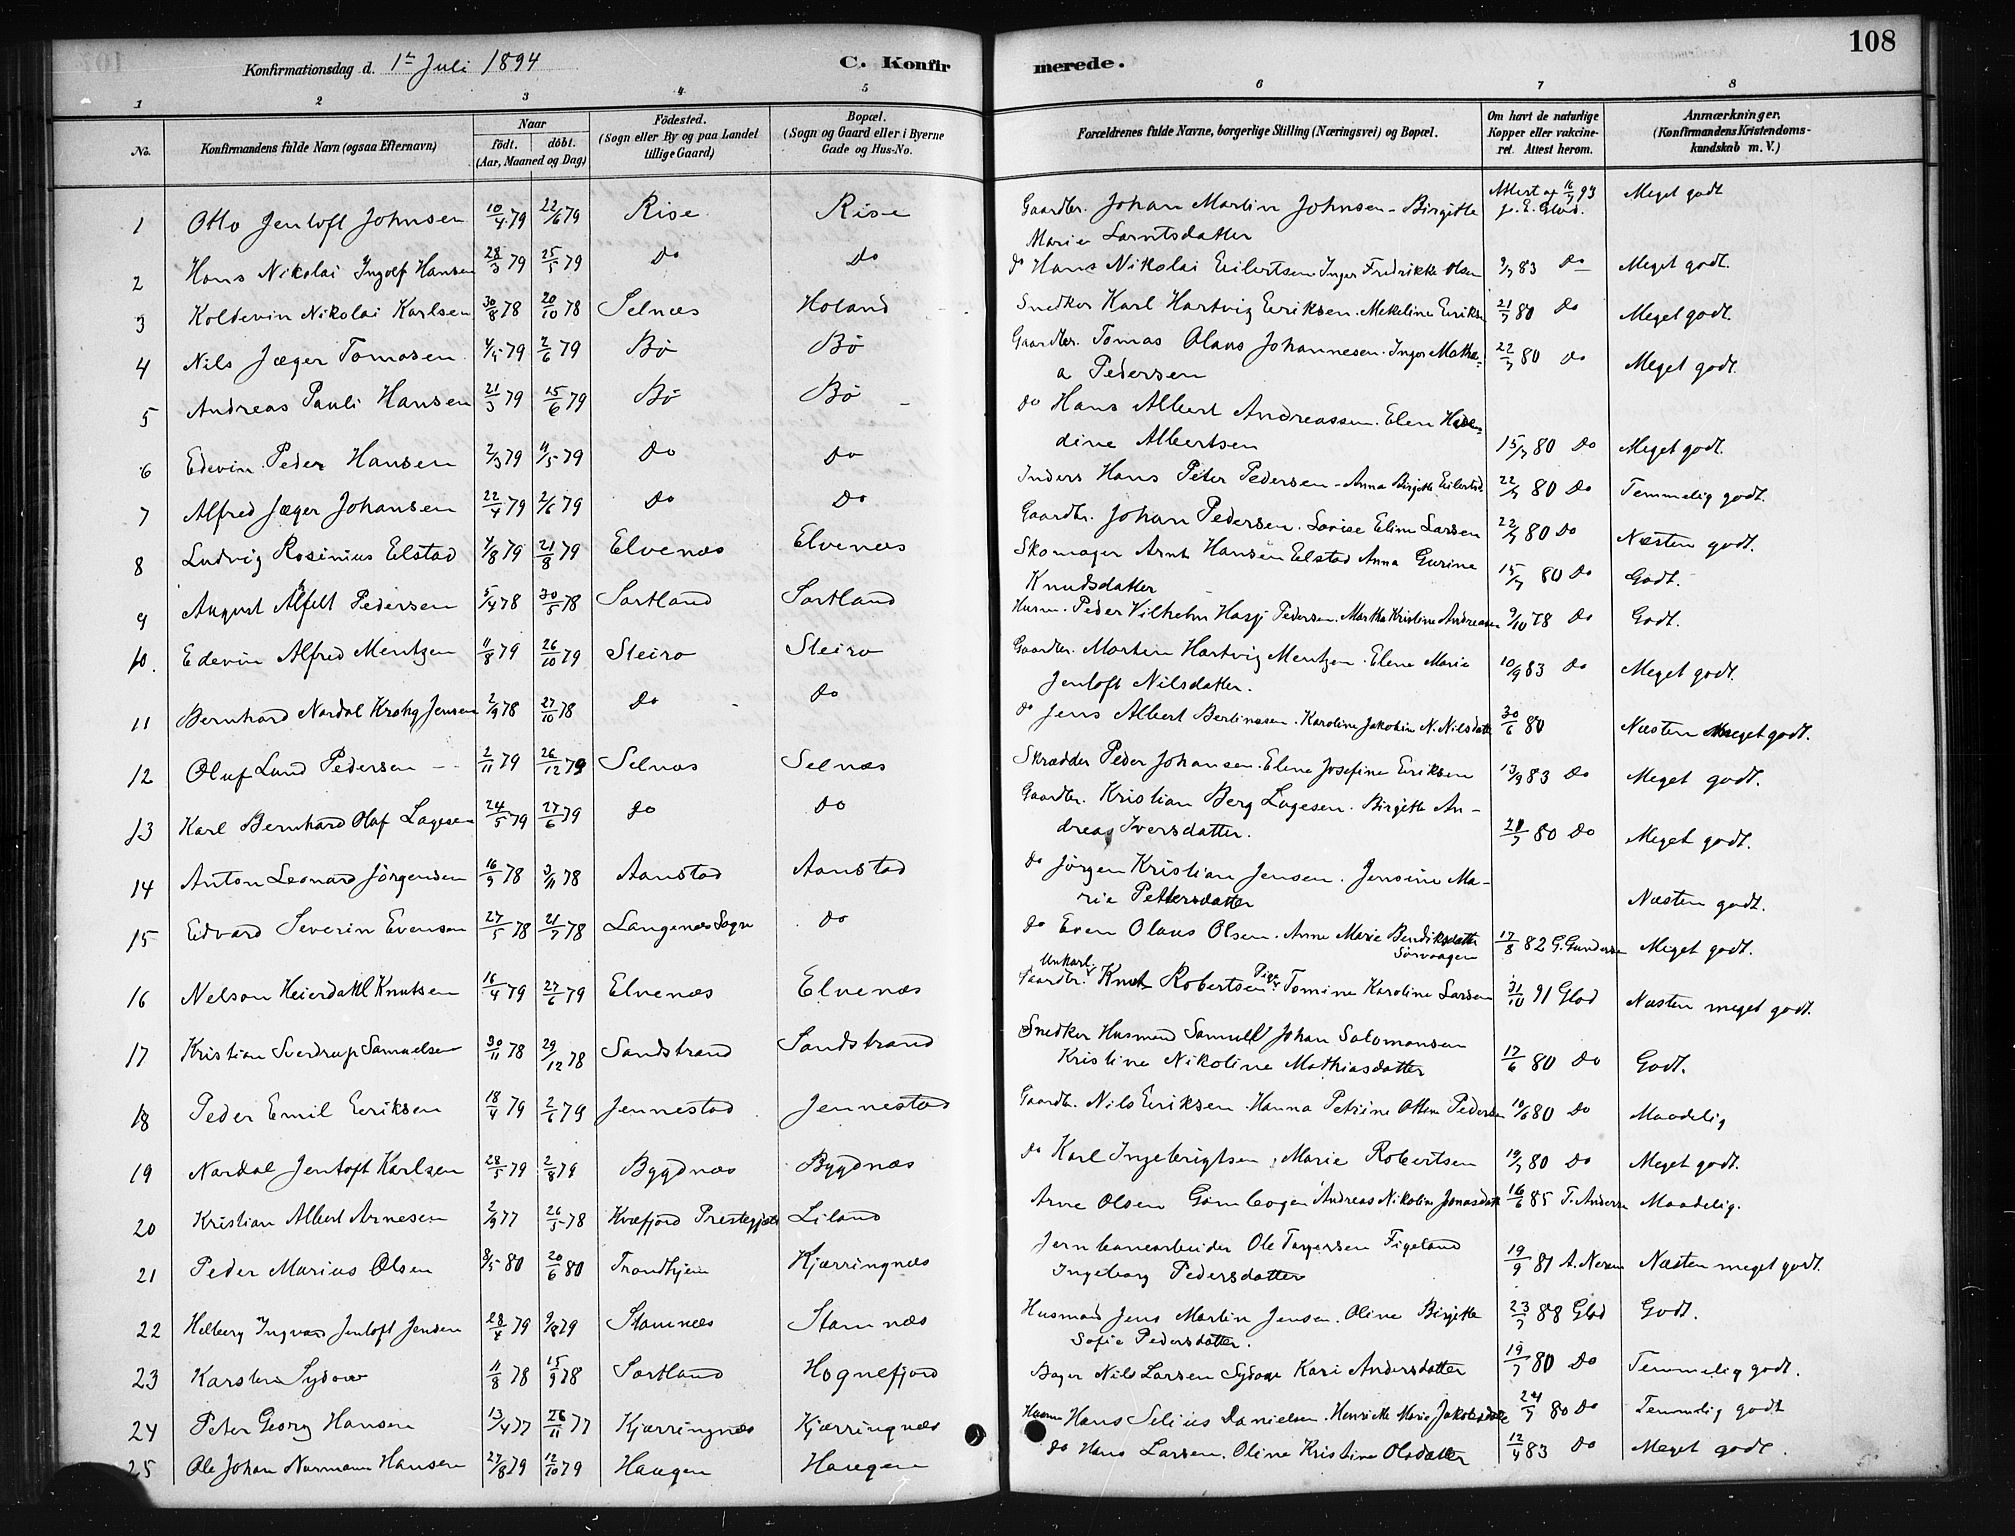 108
Konfirmationsdag d. 1ste Juli 1894
C. Konfirmerede.
1 2 3 4 5 6 7 8
No. Konfirmandens fulde Navn (ogsaa Efternavn) Naar födt. döbt. (Aar, Maaned og Dag) Födested. (Sogn eller By og paa Landet tillige Gaard) Bopæl. (Sogn og Gaard eller i Byerne Gade og Hus-No. Forældrenes fulde Navne, borgerlige Stilling (Næringsvei) og Bopæl. Om havt de naturlige Kopper eller vakcineret. Attest herom. Anmærkninger. (Konfirmandens Kristendomskundskab m. V.)
1 Otto Jentoft Johnsen 10/4 79 22/6 79 Rise Rise Gaardbr. Johan Martin Johnsen - Birgitte Marie Larntsdatter Attest af 16/7 93 Meget godt
2 Hans Nikolai Ingolf Hansen 28/3 79 25/5 79 do do do Hans Nikolai Eilertsen Inger Fredrikke Olsen 9/7 83 Do Meget godt.
3 Koldevin Nikolai Karlsen 30/8 78 20/10 78 Selnæs Holand Snedker Karl Hartvig Eeriksen. Mekeline Eeriksen 21/7 80 do Meget godt.
4 Nils Jæger Tomasen 4/5 79 2/6 79 Bö Bö Gaardbr. Tomas Olaus Johannesen. Inger Mathea Pedersen 22/7 80 do Meget godt.
5 Andreas Pauli Hansen 21/3 79 15/6 79 Bö Bö do Hans Albert Andreassen. Elen dine Albertsen 15/7 80 Do Meget godt.
6 Edevin Peder Hansen 2/3 79 11/5 79 do do Inders Hans Peter Pedersen - Anna Birgitte Eilertsd 22/7 80 Do Temmelig godt.
7 Alfred Jæger Johansen 22/4 79 2/6 79 Do Do Gaardbr. Johan Pedersen. Lovise Eline Larsen 22/7 80 Do Næsten godt.
8 Ludvig Rosinius Eilstad 4/8 79 21/8 79 Elvenæs Elvenæs Skomager Arnt Hansen Eelstad Anna Gurine Knudsdatter 15/7 80 Do Godt.
9 August Alfelt Pedersen 5/4 78 30/5 78 Sortland Sortland Husm. Peder Vilhelm Hasji Pedersen. Martha Kristine Andreasen 9/10 78 Do Godt.
10. Edevin Alfred Mentzen 11/8 79 26/10 79 Steiro Steiro Gaardbr. Martin Hartvig Mentzen. Elene Marie Jentoft Nilsdatter. 10/9 83 do Meget godt.
11 Bernhard Nordal Krohg Jensen 2/9 78 27/10 78 do do do Jens Albert Bertinusen. Karoline Jakobine N. Nilsdatter 30/6 80 Næsten meget godt.
12 Oluf Lund Pedersen 2/11 79 26/12 79 Selnæs Selnæs Skrædder Peder Johansen. Elene Josefine Eeriksen 13/9 83 Do Meget godt.
13 Karl Bernhard Olaf Lagesen 24/5 79 27/6 79 do do Gaardbr. Kristian Berg Lagesen. Birgitte Andreas Iversdatter. 21/7 80 Do Meget godt.
14 Anton Leonard Jörgensen 16/9 78 3/11 78 Aanstad Aanstad do Jörgen Kristian Jensen. Jensine Marie Pettersdatter Næsten godt.
15 Edvard Severin Evensen 27/5 78 21/7 78 Langenes Sogn do do Even Olaus Olsen. Anne Marie Bendiksdatter Sörvaagen 17/8 82 G. Gundersen Meget godt.
16 Nelson Heierdahl Knutsen 16/4 79 27/6 79 Elvenæs Elvenæs Unkarl Gaardbr. Knut Robertsen Pige Tomine Karoline Larsen 31/10 91 Glad Næsten meget godt.
17 Kristian Sverdrup Samuelsen 30/11 78 29/12 78 Sandstrand Sandstrand Snedker Husmand Samuel Johan Salomonsen Kristine Nikoline Mathiasdatter 17/6 80 Do Godt.
18 Peder Emil Eeriksen 18/4 79 2/6 79 Jennestad Jennestad Gaardbr. Nils Eeriksen. Hanna Petrine Ottine Pedersen 10/6 80 Do Maadelig
19 Nordal Jentoft Karlsen 28/5 79 2/8 79 Bygdnæs Bygdnæs do Karl Ingebrigtsen, Marie Robertsen 19/7 80 Do Meget godt.
20 Kristian Albert Arnesen 2/9 77 26/5 78 Kvæfjord Prestegjæld Liland Arne Olsen Andreas Nikoline Jonasdatter 16/6 85 T. Anderssen Maadelig.
21 Peder Marius Olsen 8/5 80 20/6 80 Trondhjem Kjærringnæs Jernbanearbeider Ole Torgersen Figeland Ingeborg Pedersdatter 19/9 81 Næsten meget godt.
22 Helberg Ingvar Jentoft Jensen 28/4 79 3/8 79 Stamnæs Stamnæs Husmand Jens Martin Jensen. Oline Birgitte Sofie Pedersdatter. 23/7 88 Glad Godt.
23 Karsten Sydow 11/8 78 15/9 78 Sortland Hognefjord Bager Nils Larsen Sydow Kari Andersdatter 19/7 80 Do Temmelig godt.
24 Peter Georg Hansen 13/4 77 26/11 77 Kjærringnæs Kjærringnæs Husm Hans Selius Danielsen. Henriette Marie Jakobsdatter 24/7 80 Do Temmelig godt
25 Ole Johan Normann Hansen 27/8 79 12/10 79 Haugen Haugen do Hans Larsen. Oline Kristine Olsdatter 12/4 83 Do Meget godt.